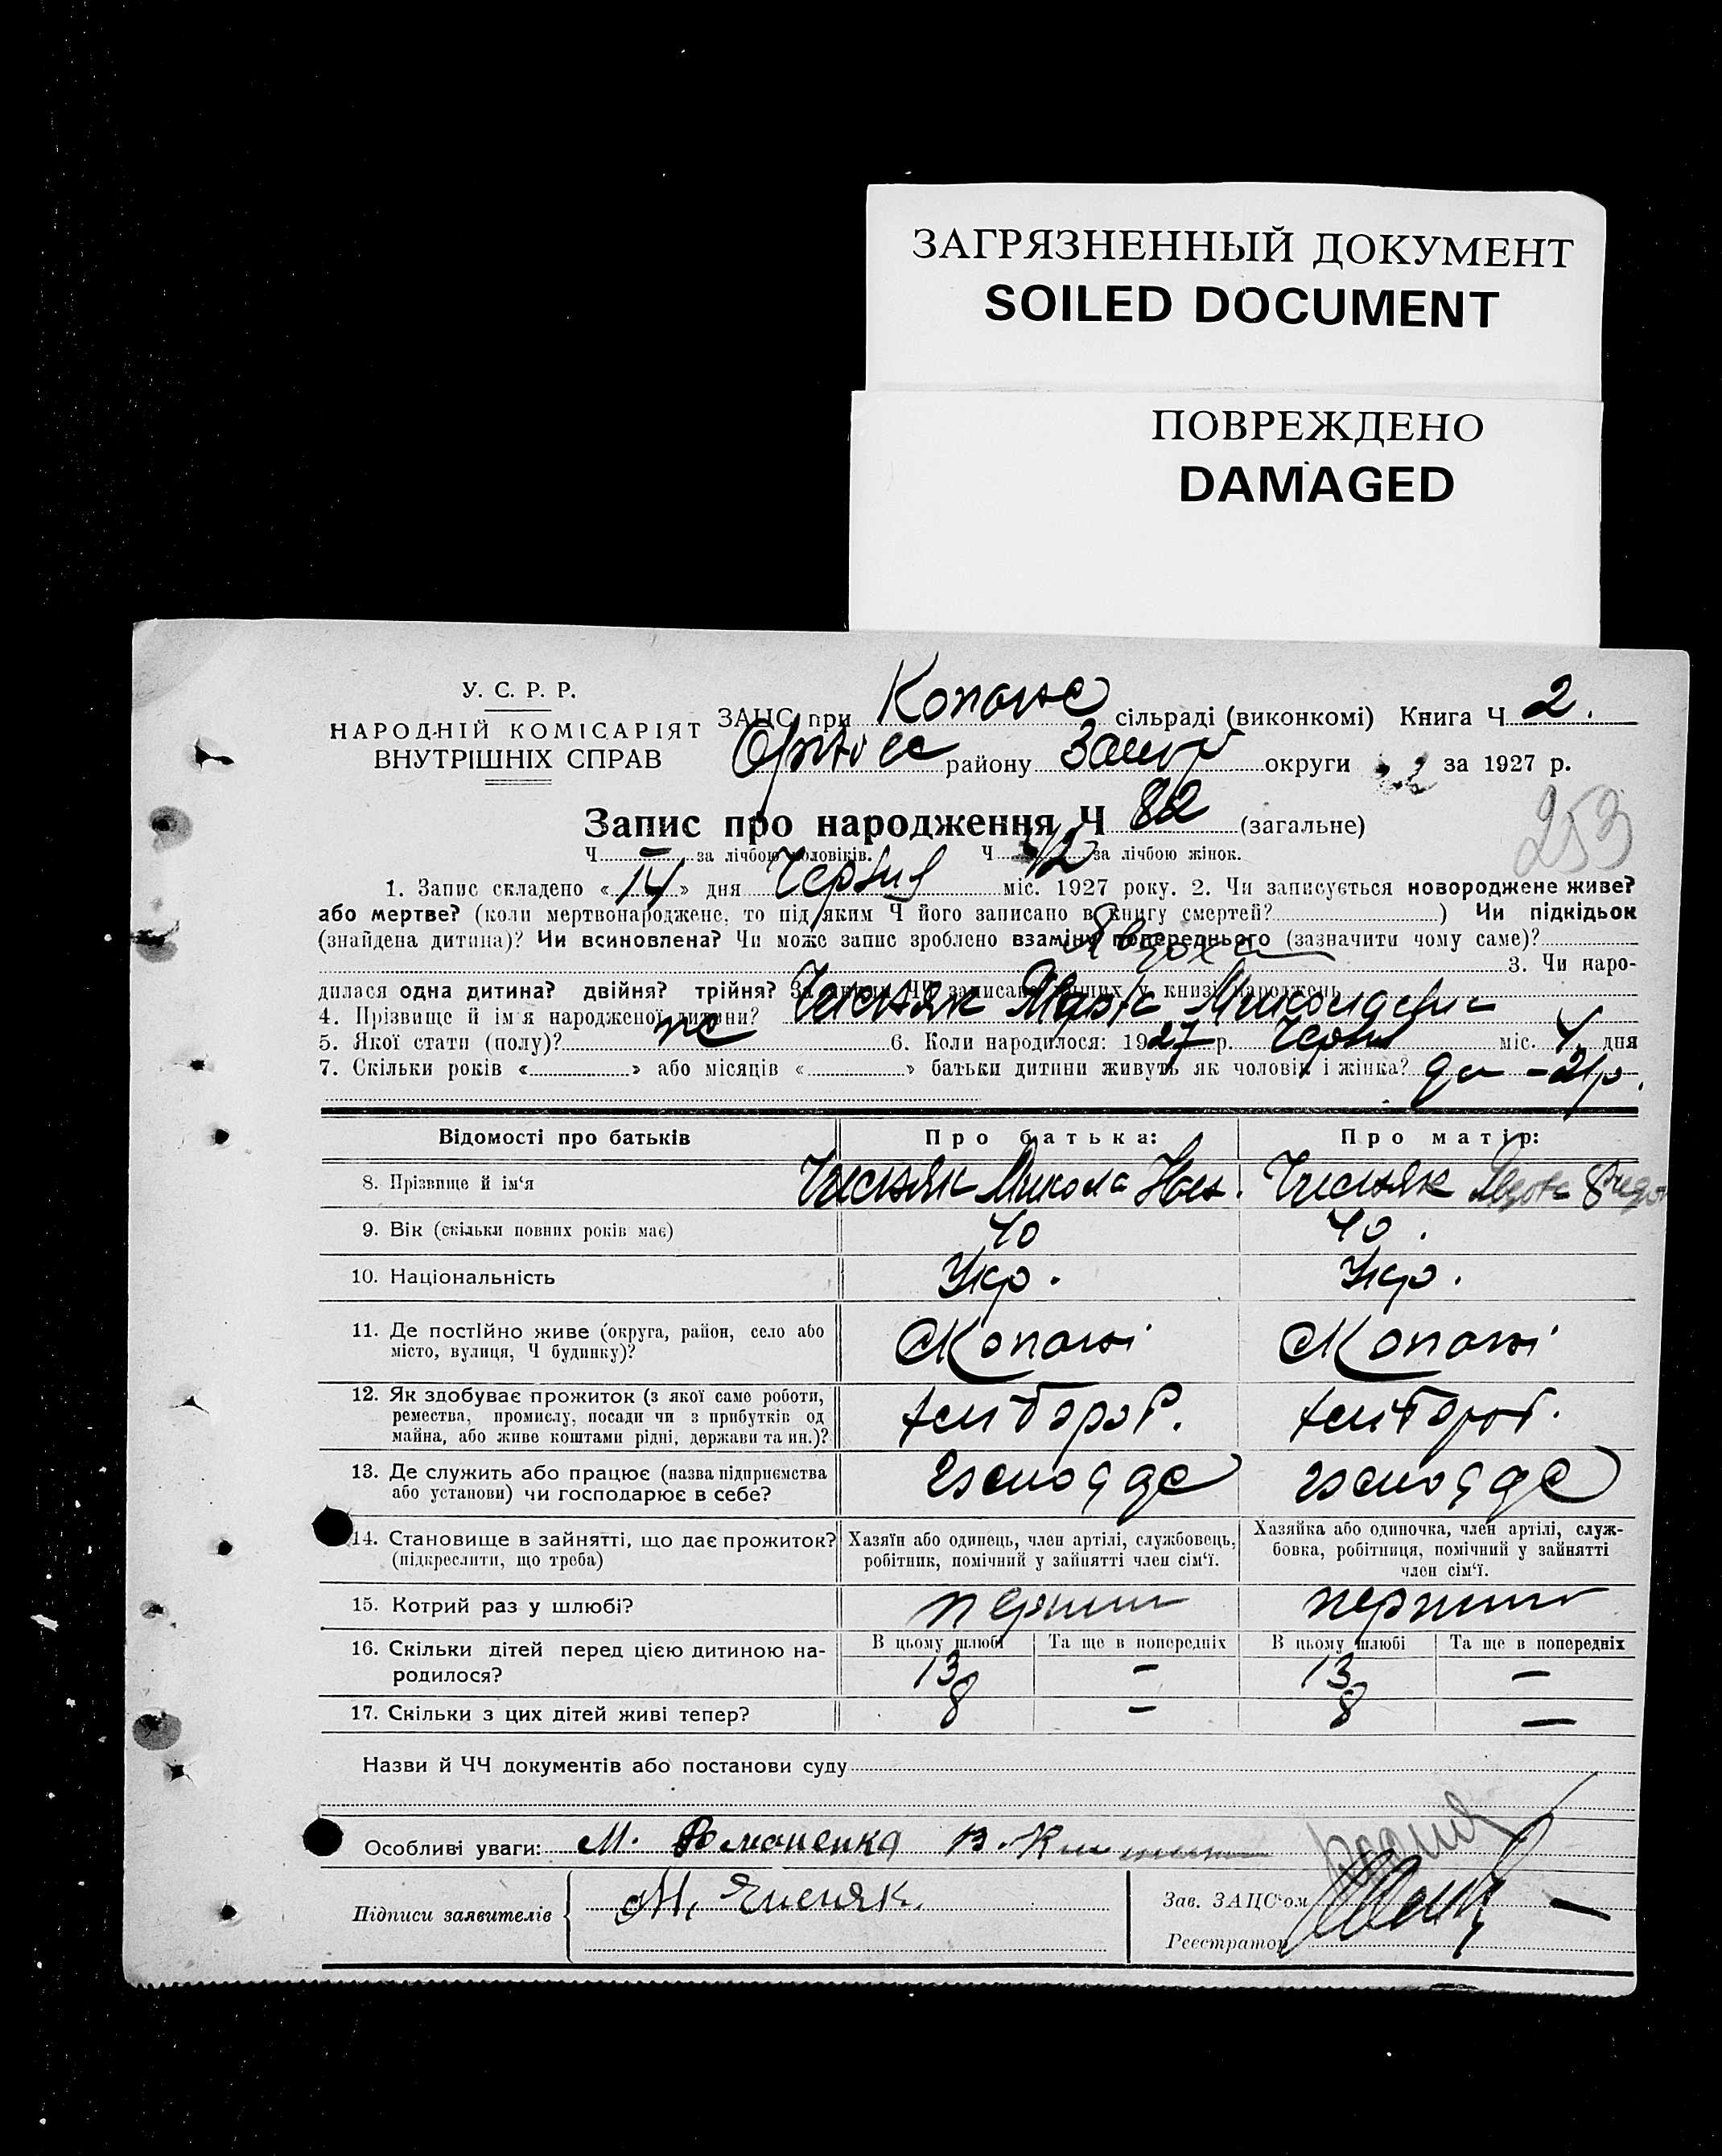 ЗАГРЯЗНЕННЫЙ ДОКУМЕНТ
SOILED DOCUMENT
ПОВРЕЖДЕНО
DAMAGED
У. С. Р. Р.
НАРОДНІЙ КОМІСАРІЯТ
ВНУТРІШНІХ СПРАВ
ЗАЦС при сільраді (виконкомі) Книга Ч 2.
району округи за 1927 р.
Запис про народження Ч 82 (загальне)
253
Ч — за лічбою чоловіків. Ч 42 за лічбою жінок.
1. Запис складено «14» дня міс. 1927 року. 2. Чи записується новороджене живе?
або мертве? (коли мертвонароджене, то під яким Ч його записано в книгу смертей? ) Чи підкідьок
(знайдена дитина)? Чи всиновлена? Чи може запис зроблено взамінь попереднього (зазначити чому саме)?
Явдоха
3. Чи наро-
дилася одна дитина? двійня? трійня? За якими ЧЧ записано інших у книзі народжень
4. Прізвище й ім'я народженої дитини? Чисняк Явдоха Миколаєвна
5. Якої стати (полу)? же 6. Коли народилося: 1927 р. міс. 4 дня
7. Скільки років « » або місяців « » батьки дитини живуть як чоловік і жінка? да - 21 р.
Відомості про батьків Про батька: Про матір:
8. Прізвище й ім'я Чисняк Микола Чисняк
9. Вік (скільки повних років має) 40 40.
10. Національність Укр. Укр.
11. Де постійно живе (округа, район, село або
місто, вулиця, Ч будинку)? Копані Копані
12. Як здобуває прожиток (з якої саме роботи,
ремества, промислу, посади чи з прибутків од
майна, або живе коштами рідні, держави та ин.)? хлібороб. хлібороб.
13. Де служить або працює (назва підприємства
або установи) чи господарює в себе?
14. Становище в зайнятті, що дає прожиток?
(підкреслити, що треба)
Хазяїн або одинець, член артілі, службовець,
робітник, помічний у зайнятті член сім'ї.
Хазяйка або одиночка, член артілі, служ-
бовка, робітниця, помічний у зайнятті
член сім'ї.
15. Котрий раз у шлюбі? перший перший
16. Скільки дітей перед цією дитиною на-
родилося?
В цьому шлюбі Та ще в попередніх В цьому шлюбі Та ще в попередніх
13 — 13 —
17. Скільки з цих дітей живі тепер? 8 — 8 —
Назви й ЧЧ документів або постанови суду
Особливі уваги: М. Романенко В.
Підписи заявителів М. Чисняк.
Зав. ЗАЦС'ом
Реєстратор